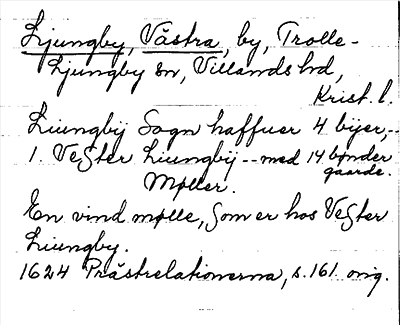 Ljungby, Västra, by, Trolle-
Ljungby sn, Villands hd,
Krist. l.
Liungbÿ Sogn haffuer 4 bÿer,--
1. Vester Liungbÿ -- med 14 bønder
gaarde.
Møller.
En vind mølle, Som er hos Vester
Liungby.
1624 Prästrelationerna, s. 161. orig.